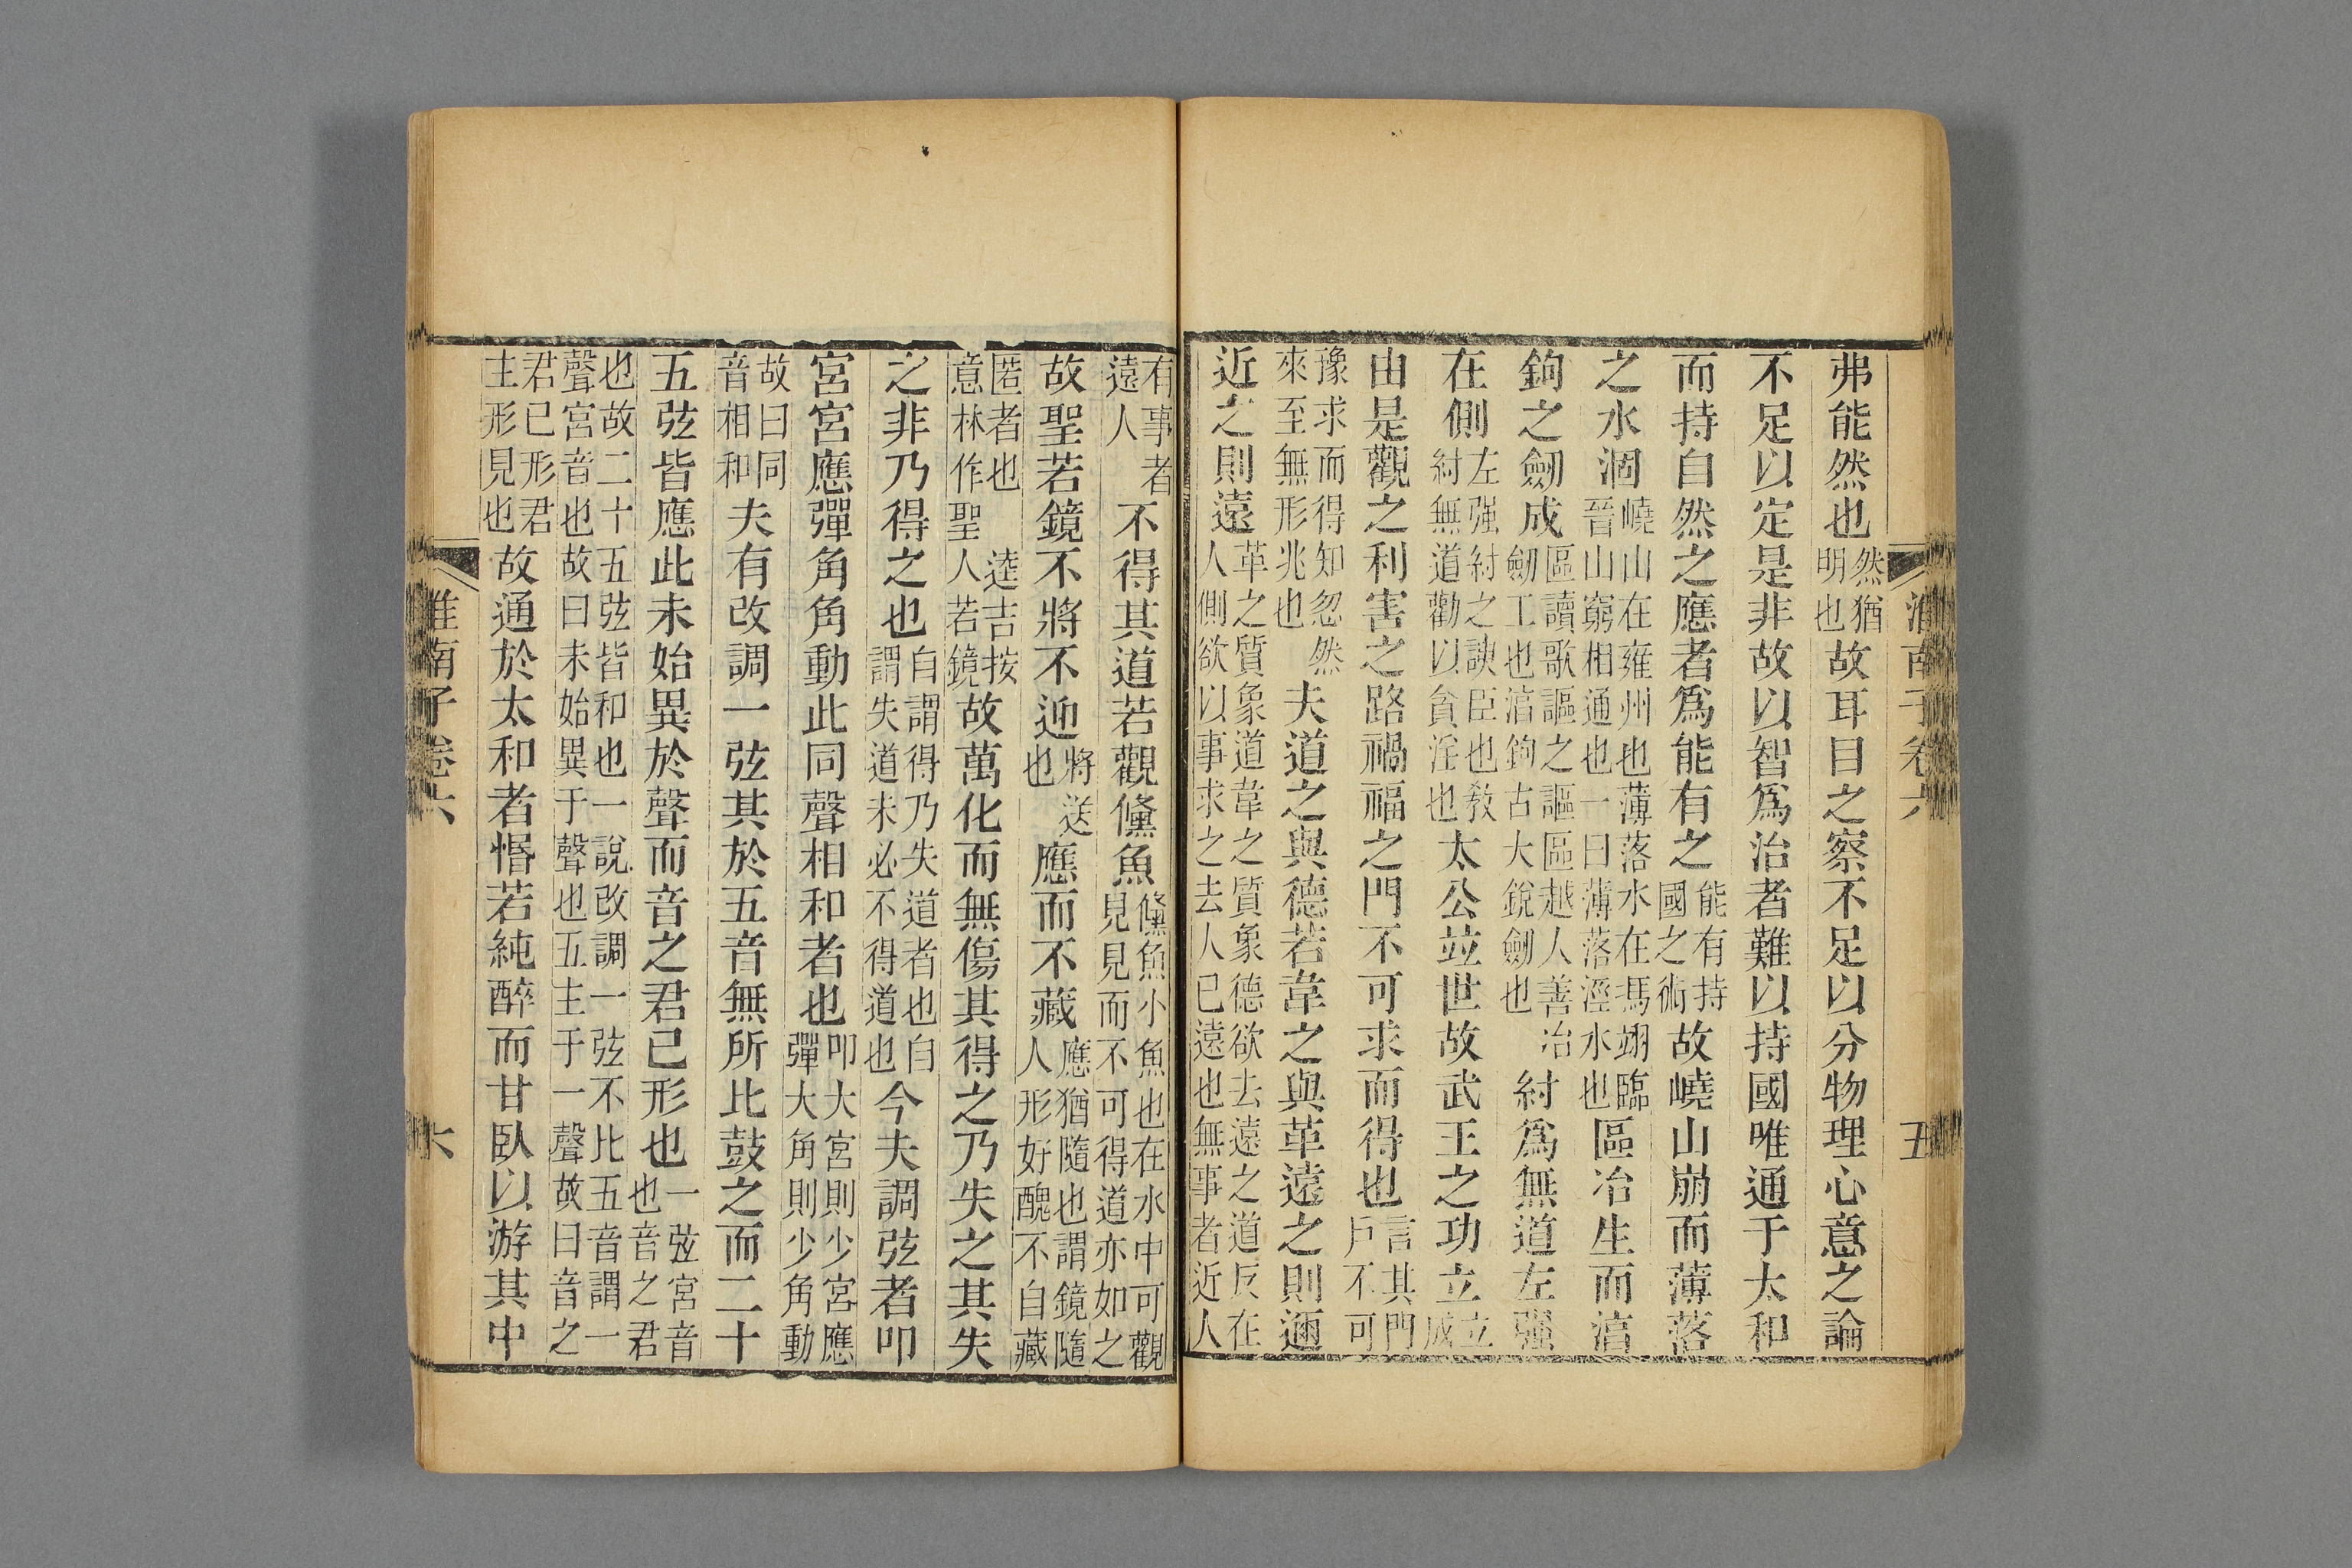 弗能然也然猶明也故耳目之察不足以分物理心意之論
不足以定是非故以智爲治者難以持國唯通于太和
而持自然之應者爲能有之能有持國之術故嶢山崩而薄落
之水涸嶢山在雍州也薄落水在馮翊臨晉山窮相通也一曰薄落涇水也區冶生而淯
鉤之劒成區讀歌謳之謳區越人善冶劒工也淯鉤古大銳劒也紂爲無道左強
在側左强紂之諛臣也敎紂無道勸以貪淫也太公竝世故武王之功立立成
由是觀之利害之路禍福之門不可求而得也言其門戶不可
豫求而得知忽然來至無形兆也夫道之與德若韋之與革遠之則邇
近之則遠革之質象道韋之質象德欲去遠之道反在人側欲以事求之去人已遠也無事者近人
有事者遠人不得其道若觀儵魚儵魚小魚也在水中可觀見見而不可得道亦如之
故聖若鏡不將不迎將送也應而不藏應猶隨也謂鏡隨人形好醜不自藏
匿者也逵吉按意林作聖人若鏡故萬化而無傷其得之乃失之其失
之非乃得之也自謂得乃失道者也自謂失道未必不得道也今夫調弦者叩
宮宮應彈角角動此同聲相和者也叩大宮則少宮應彈大角則少角動
故曰同音相和夫有改調一弦其於五音無所比鼓之而二十
五弦皆應此未始異於聲而音之君已形也一弦宮音也音之君
也故二十五弦皆和也一說改調一弦不比五音謂一聲宮音也故曰未始異于聲也五主于一聲故曰音之
君已形君主形見也故通於太和者惛若純醉而甘臥以游其中
淮南子卷六
五
淮南子卷六
六